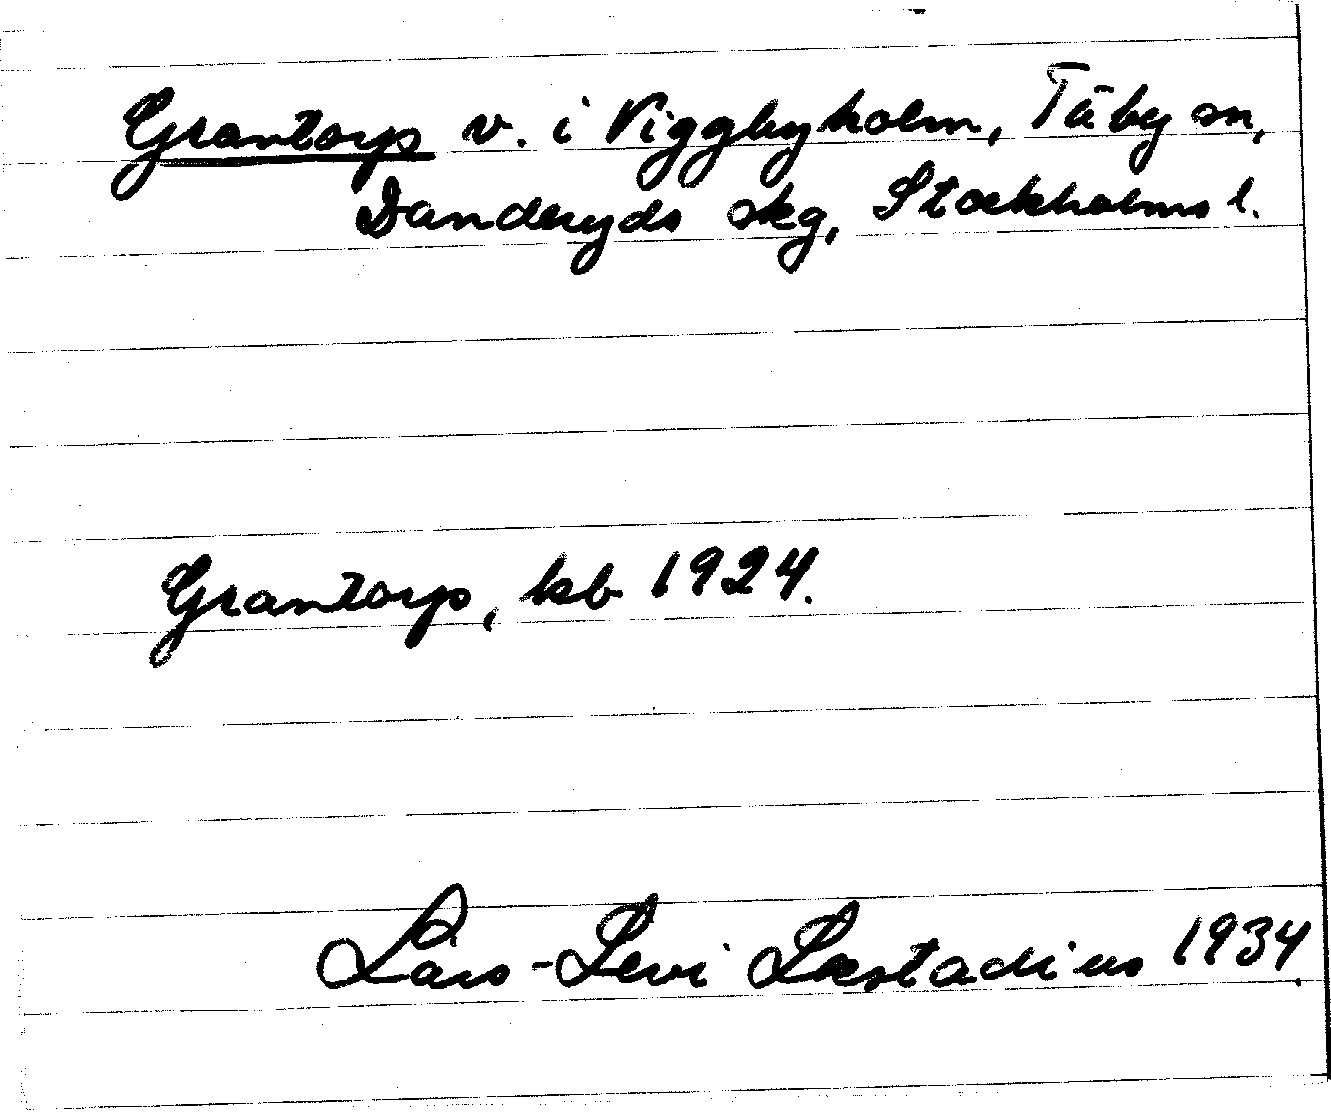 Grantorp v. i Viggbyholm, Täby sn,
Danderyds skg, Stockholms l.
Grantorp, kb 1924.
Lars-Levi Læstadius 1934.